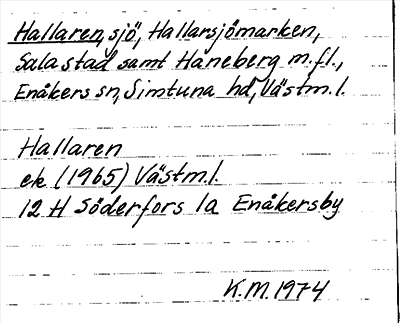 Hallaren, sjö, Hallarsjömarken,
Sala stad samt Haneberg m.fl.,
Enåkers sn, Simtuna hd, Västm.l.
Hallaren
ek (1965) Västm.l.
12 H Söderfors 1a Enåkersby
K.M. 1974